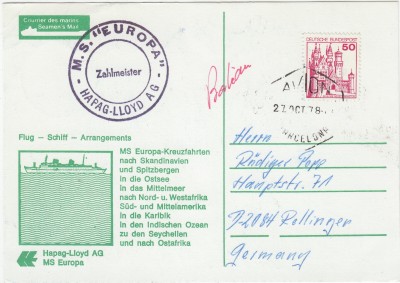 Courrier des marins
Seamen's Mail
M.S. "EUROPA"
Zahlmeister
HAPAG-LLOYD AG
DEUTSCHE BUNDESPOST
50
AVION
27 OCT 78
BARCELONA
Flug – Schiff – Arrangements
MS Europa-Kreuzfahrten
nach Skandinavien
und Spitzbergen
in die Ostsee
in das Mittelmeer
nach Nord- u. Westafrika
Süd- und Mittelamerika
in die Karibik
in den Indischen Ozean
zu den Seychellen
und nach Ostafrika
Hapag-Lloyd AG
MS Europa
Herrn
Rüdiger Popp
Hauptstr. 71
D-2084 Rellingen
Germany